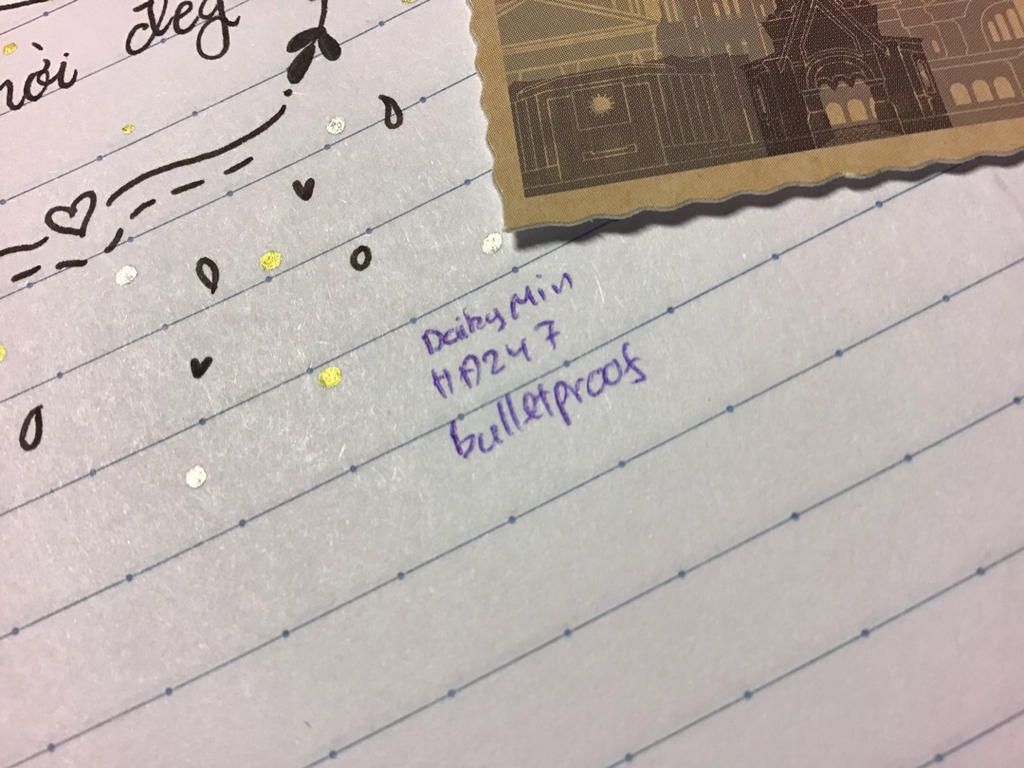 đẹg
Daisy Min
HA247
bulletproofs